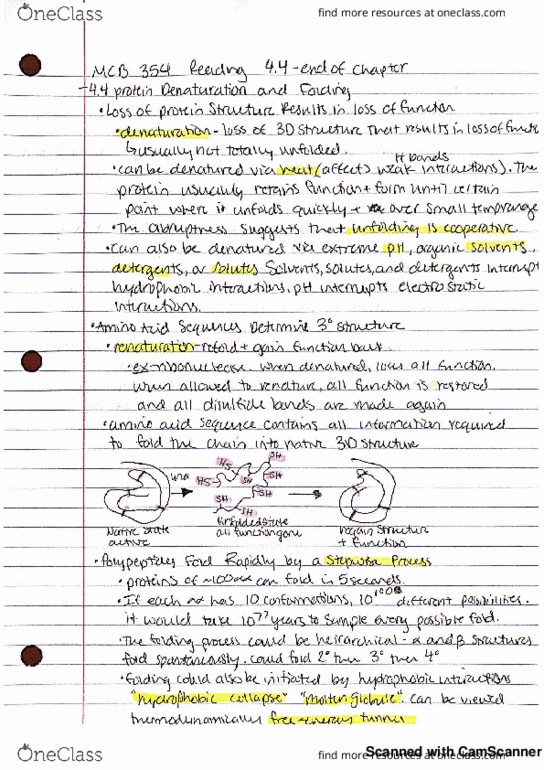 OneClass
find more resources at oneclass.com
MCB 354 Reading 4.4-end of chapter
-4.4 protein Denaturation and Folding
• Loss of protein Structure Results in loss of function
• denaturation - loss of 3D structure that results in loss of functi
↳ usually not totally unfolded.
H bonds
• can be denatured via heat (affects weak interactions). The
protein usually retains function + form until certain
point where it unfolds quickly + over small temp range
• The abruptness suggests that unfolding is cooperative.
• can also be denatured via extreme pH, organic solvents,
detergents, or solutes Solvents, solutes, and detergents interrupt
hydrophobic interactions. pH interrupts electrostatic
interactions.
• Amino Acid Sequences Determine 3° structure
• renaturation - refold + gain function back.
• ex - ribonuclease. when denatured, loses all function.
when allowed to renature, all function is restored
and all disulfide bonds are made again
• amino acid sequence contains all information required
to fold the chain into native 3D structure
urea
HS
SH
HS
SH
SH
SH
SH
SH
Native State
active
unfolded state
all function gone
regain structure
+ function
• Polypeptides Fold Rapidly by a Stepwise Process
• proteins of ~100 aa can fold in 5 seconds.
• If each aa has 10 conformations, 10^100 different possibilities.
it would take 10^77 years to sample every possible fold.
• The folding process could be heirarchical - α and β structures
fold spontaneously. could fold 2° then 3° then 4°
• folding could also be initiated by hydrophobic interactions
"hydrophobic collapse" "molten globule". can be viewed
thermodynamically free-energy funnel
OneClass
find more resources at oneclass.com
Scanned with CamScanner